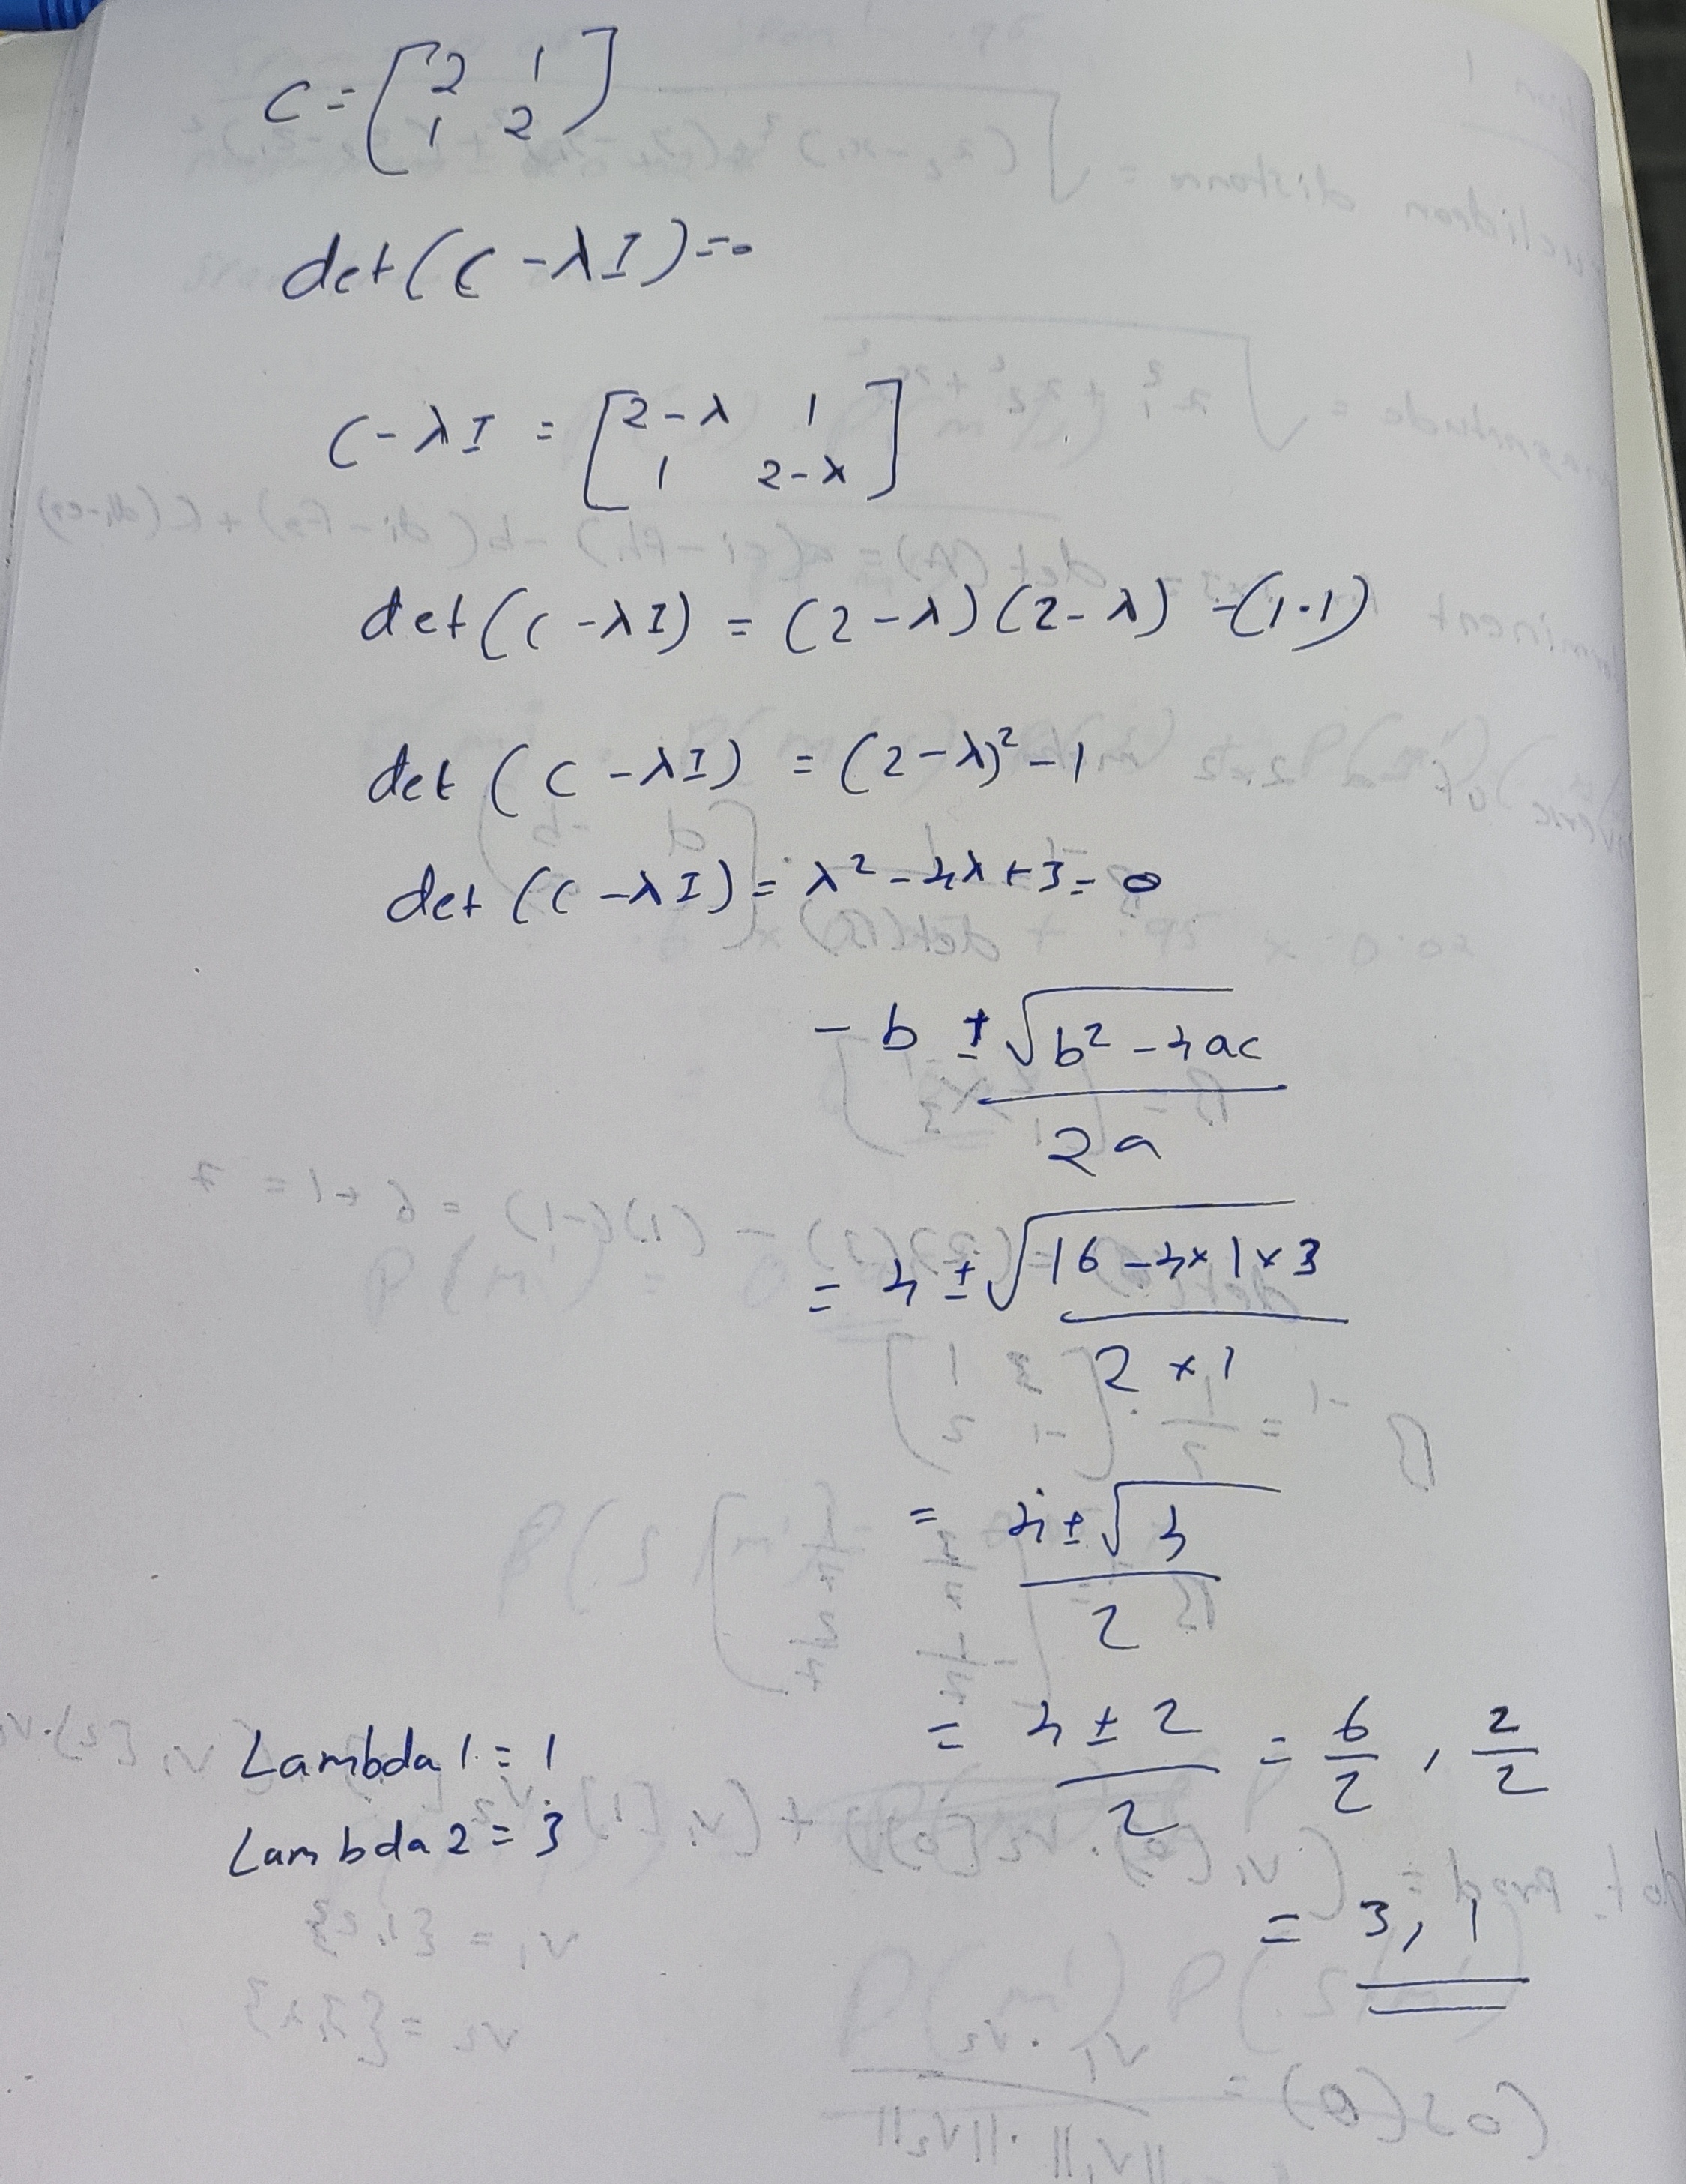 C = [2 1
1 2]
det(C - λI) = 0
C - λI = [2-λ 1
1 2-λ]
det(C - λI) = (2-λ)(2-λ) - (1·1)
det(C - λI) = (2-λ)² - 1
det(C - λI) = λ² - 4λ + 3 = 0
- b ± √b² - 4ac
2a
= 4 ± √16 - 4×1×3
2 × 1
= 4 ± √4
2
= 4 ± 2 / 2 = 6/2 , 2/2
Lambda 1 = 1
Lambda 2 = 3
= 3, 1